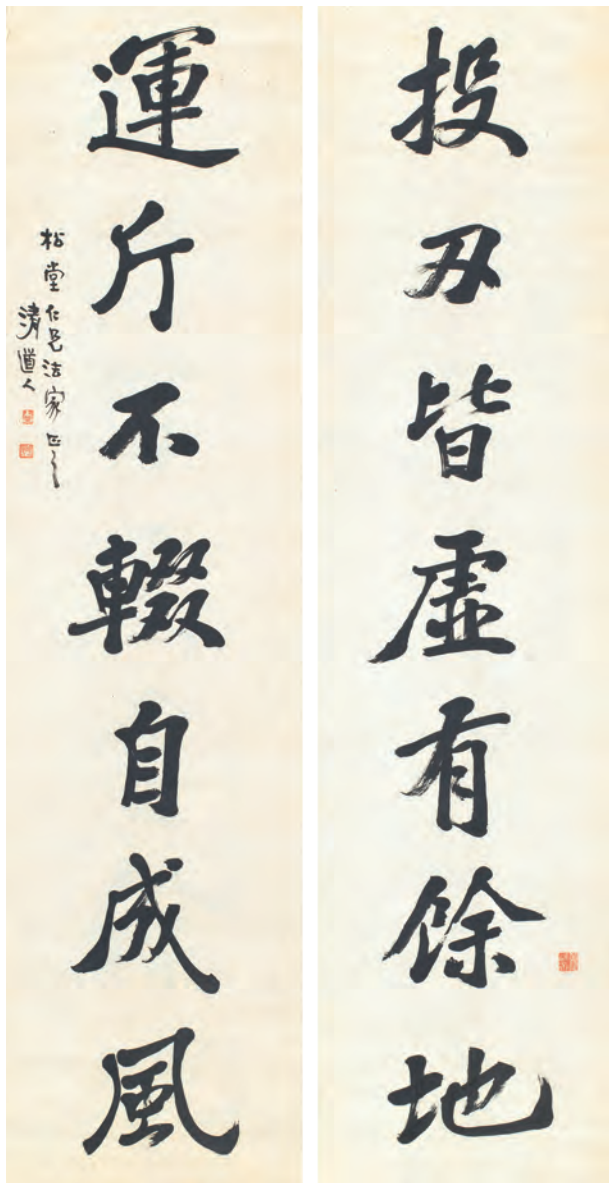 投刃皆虛有餘地
運斤不輟自成風
松堂仁兄法家正之
清道人